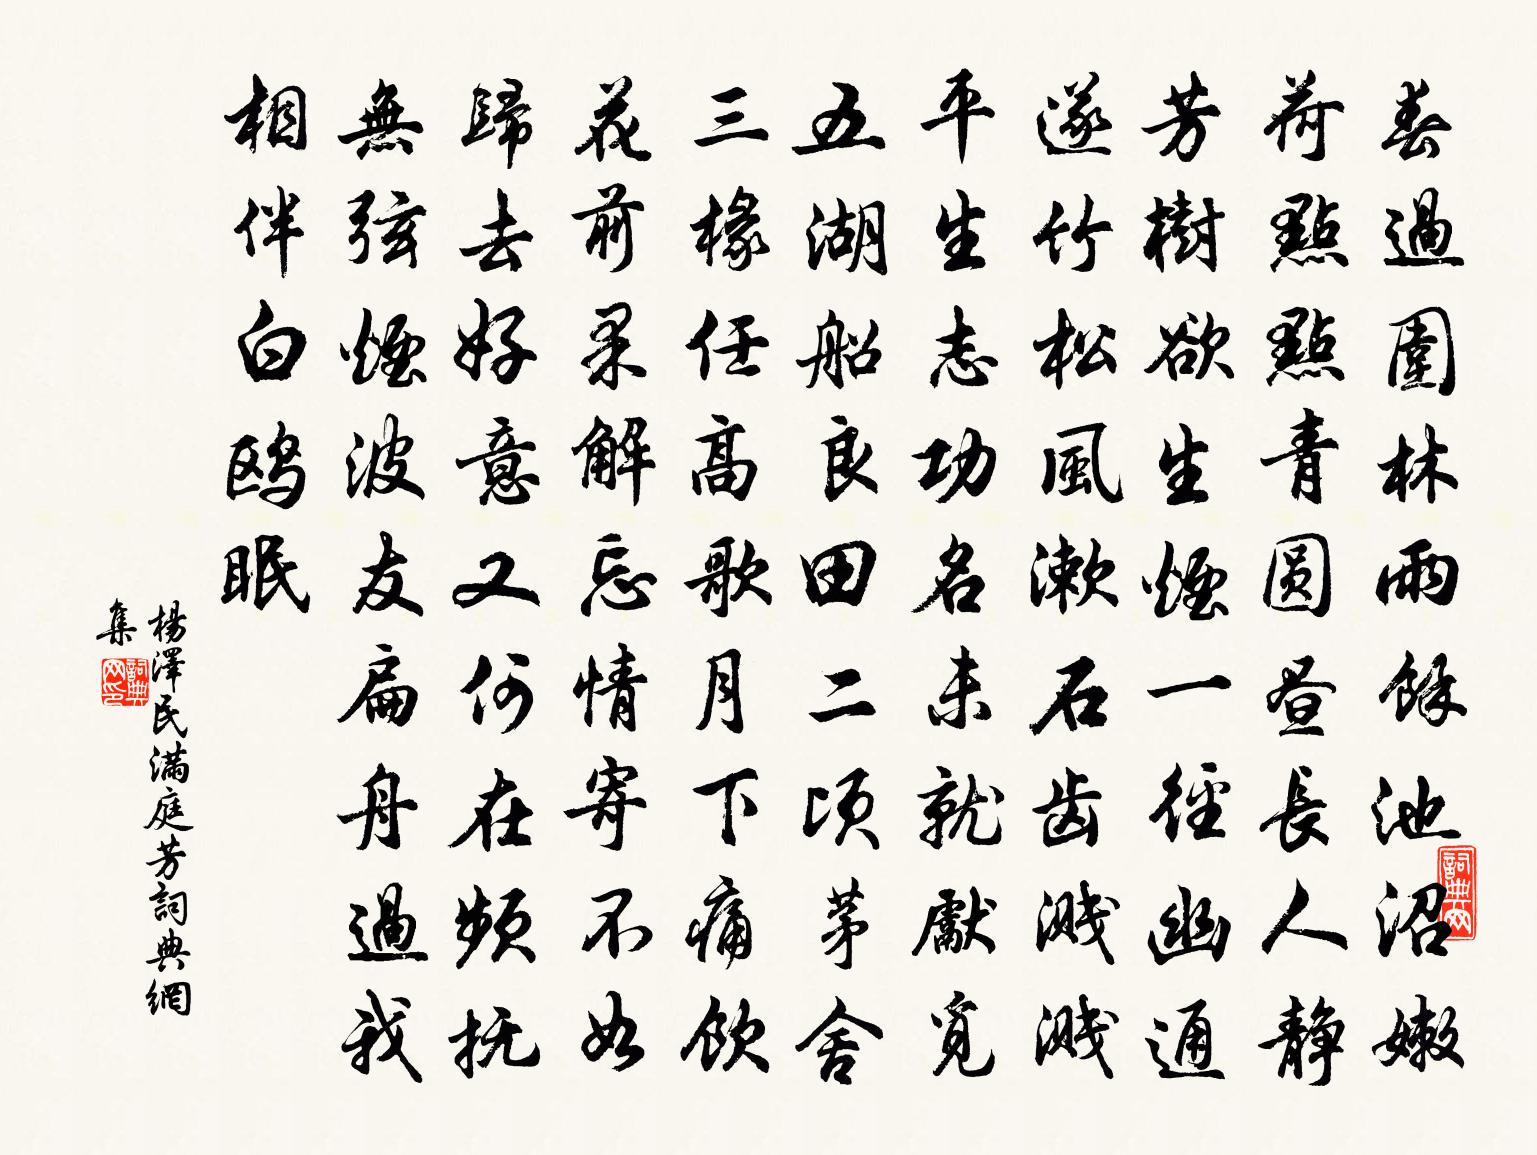 春過園林雨餘池沼嫩
荷點點青圆晝長人靜
芳樹欲生煙一徑幽通
邃竹松風漱石齿溅溅
平生志功名未就獻覓
五湖船良田二顷茅舍
三椽任高歌月下痛飲
花前果解忘情寄不如
歸去好意又何在頻抚
無弦煙波友扁舟過我
相伴白鸥眠
楊澤民滿庭芳詞典網
集
詞典网
詞典网印